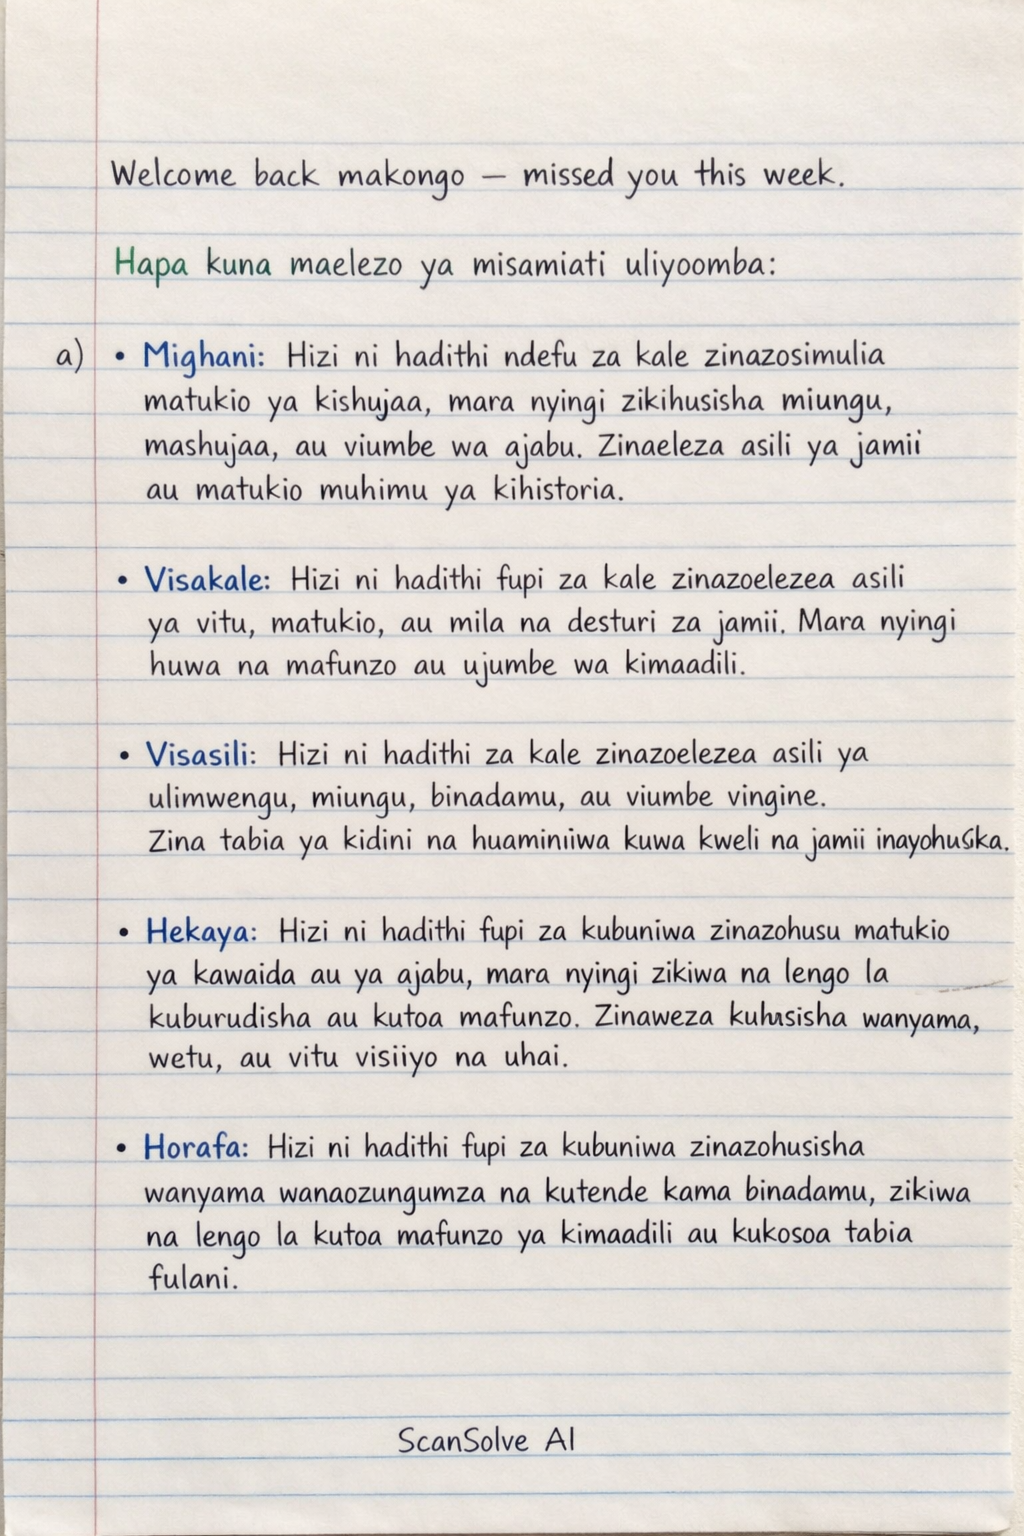 Welcome back makongo — missed you this week.
Hapa kuna maelezo ya misamiati uliyoomba:
a) • Mighani: Hizi ni hadithi ndefu za kale zinazosimulia
matukio ya kishujaa, mara nyingi zikihusisha miungu,
mashujaa, au viumbe wa ajabu. Zinaeleza asili ya jamii
au matukio muhimu ya kihistoria.
• Visakale: Hizi ni hadithi fupi za kale zinazoelezea asili
ya vitu, matukio, au mila na desturi za jamii. Mara nyingi
huwa na mafunzo au ujumbe wa kimaadili.
• Visasili: Hizi ni hadithi za kale zinazoelezea asili ya
ulimwengu, miungu, binadamu, au viumbe vingine.
Zina tabia ya kidini na huaminiiwa kuwa kweli na jamii
• Hekaya: Hizi ni hadithi fupi za kubuniwa zinazohusu matukio
ya kawaida au ya ajabu, mara nyingi zikiwa na lengo la
kuburudisha au kutoa mafunzo. Zinaweza wanyama,
wetu, au vitu visiiyo na uhai.
• Horafa: Hizi ni hadithi fupi za kubuniwa zinazohusisha
wanyama wanaozungumza na kutende kama binadamu, zikiwa
na lengo la kutoa mafunzo ya kimaadili au kukosoa tabia
fulani.
ScanSolve AI